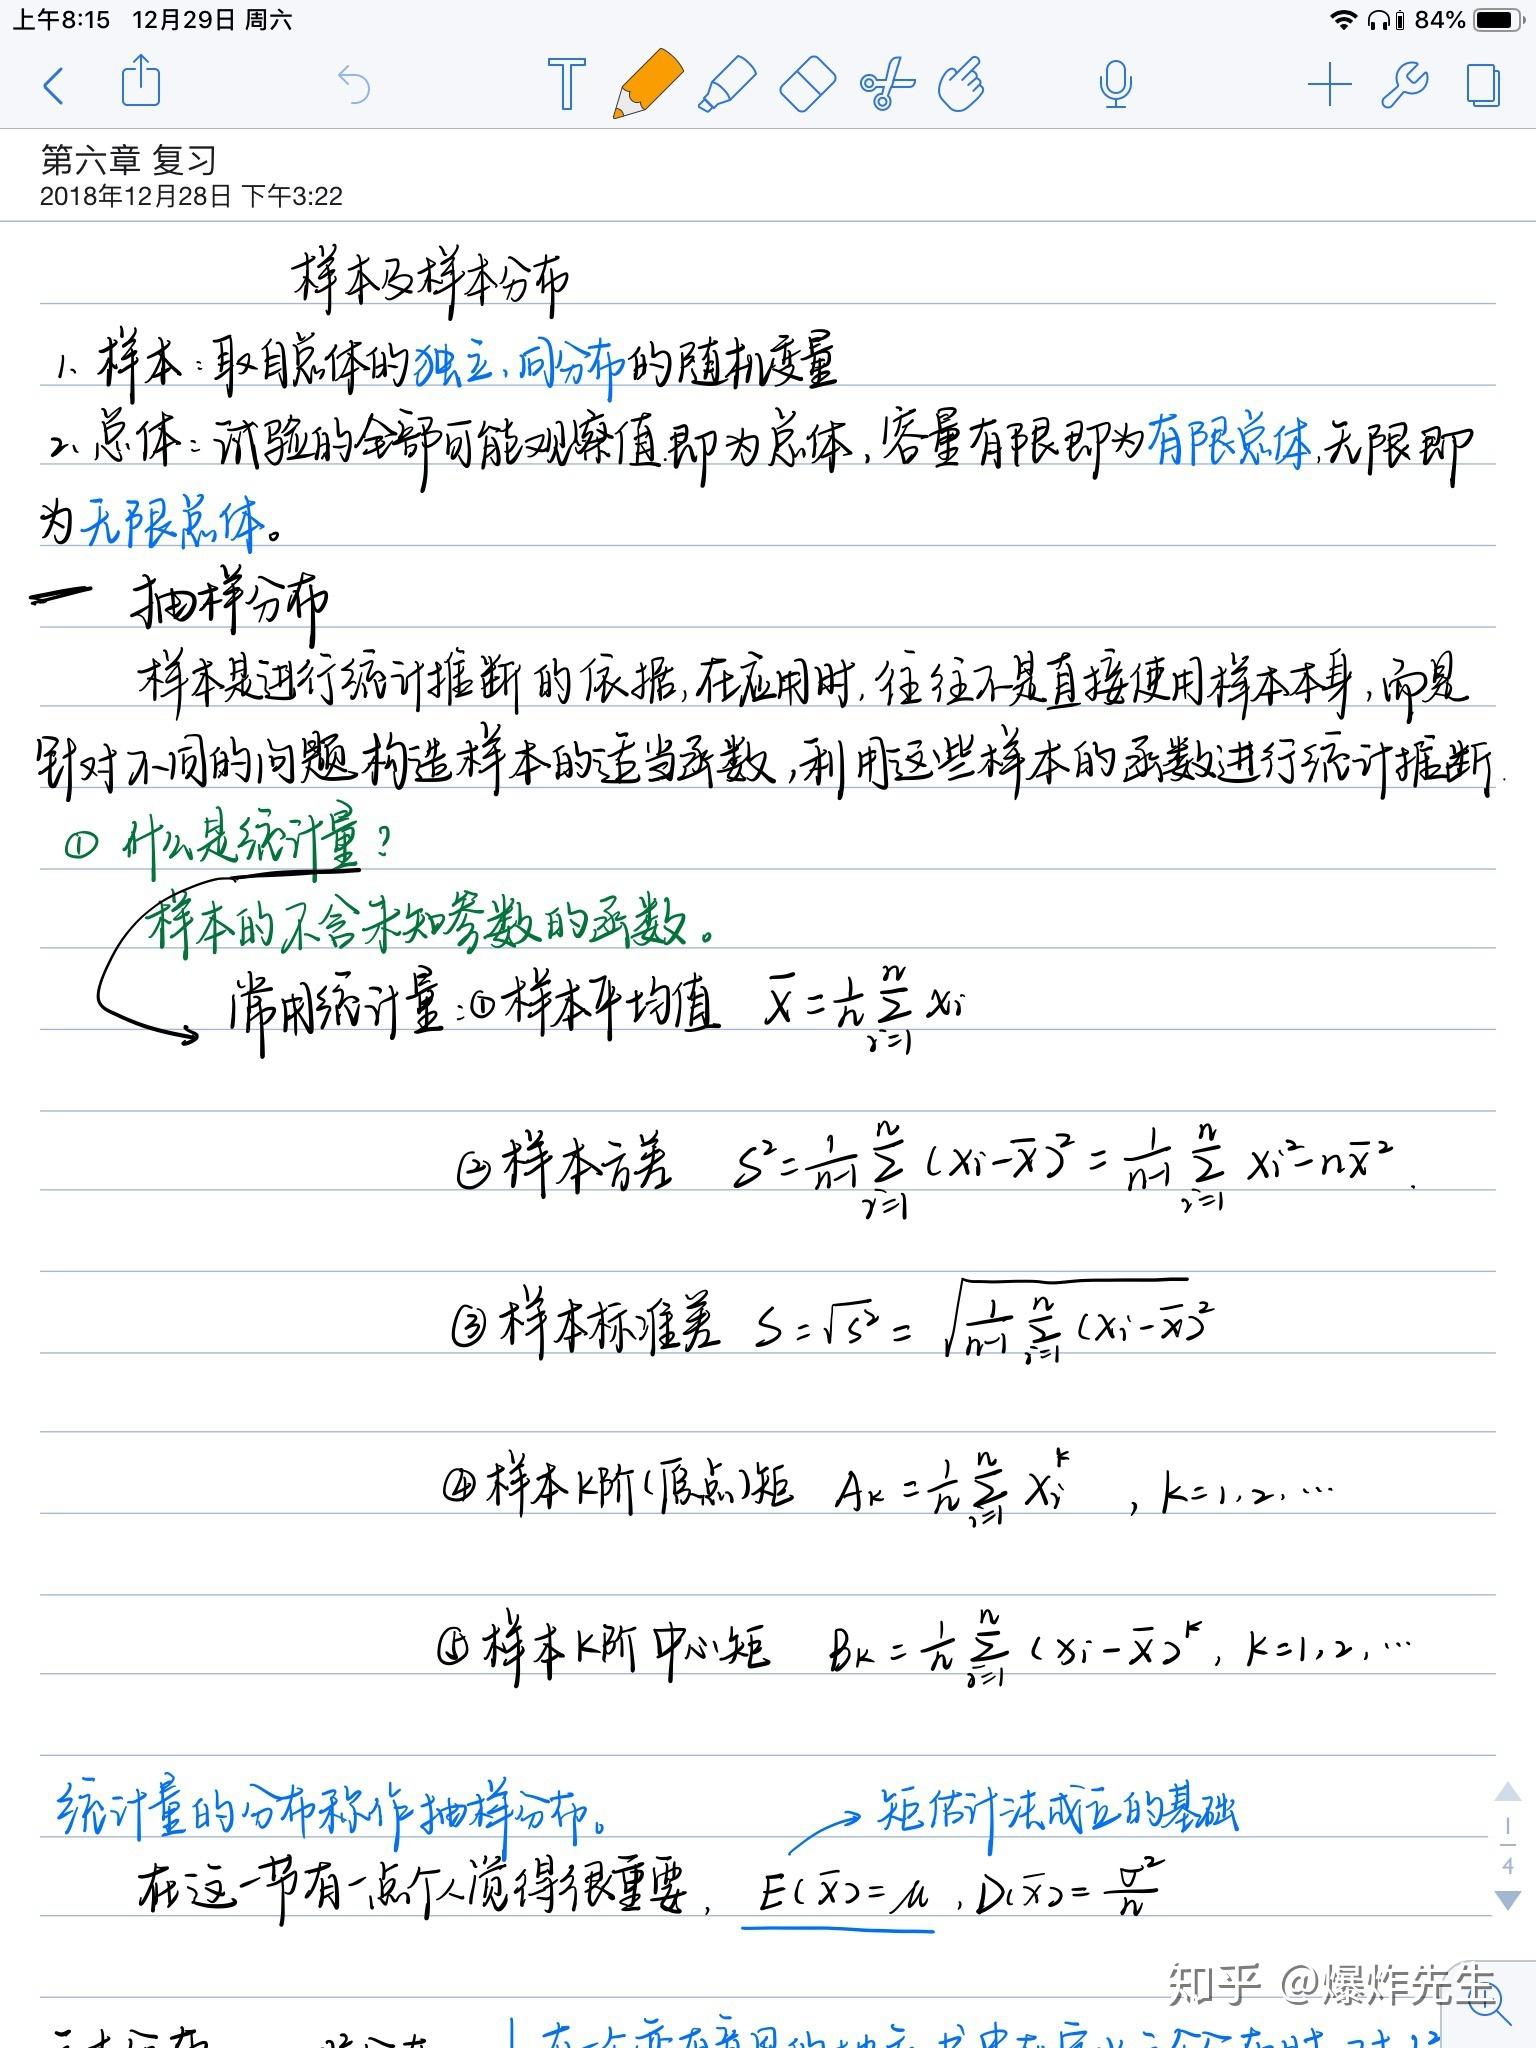 上午8:15 12月29日 周六 84%
第六章 复习
2018年12月28日 下午3:22
样本及样本分布
1、样本：取自总体的独立、同分布的随机变量
2、总体：试验的全部可能观察值即为总体，容量有限即为有限总体，无限即
为无限总体。
一 抽样分布
样本是进行统计推断的依据，在应用时，往往不是直接使用样本本身，而是
针对不同的问题构造样本的适当函数，利用这些样本的函数进行统计推断．
① 什么是统计量？
样本的不含未知参数的函数。
常用统计量：①样本平均值 X̄ = 1/n ∑_{i=1}^{n} Xi
②样本方差 S² = 1/(n-1) ∑_{i=1}^{n} (Xi - X̄)² = 1/(n-1) ∑_{i=1}^{n} Xi² - nX̄².
③样本标准差 S = √S² = √(1/(n-1) ∑_{i=1}^{n} (Xi - X̄)²)
④样本K阶(原点)矩 A_K = 1/n ∑_{i=1}^{n} Xi^K , K=1,2,…
⑤样本K阶中心矩 B_K = 1/n ∑_{i=1}^{n} (Xi - X̄)^K, K=1,2,…
统计量的分布称作抽样分布。 → 矩估计法成立的基础
在这一节有一点个人觉得很重要，E(X̄)=μ，D(X̄)=σ²/n
1
4
知乎 @爆炸先生